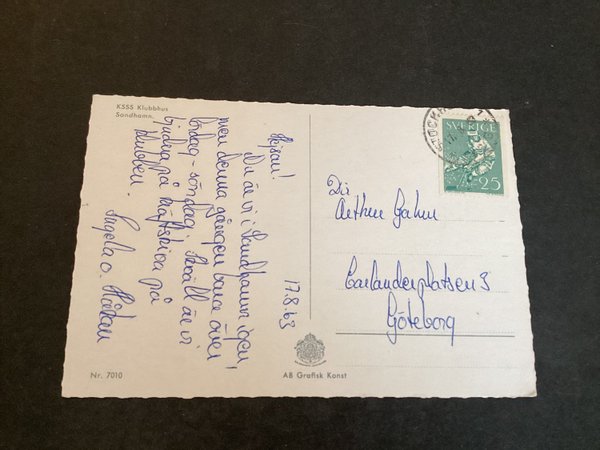 KSSS Klubbhus
Sandhamn.
17.8.63
Hejsan!
Nu är vi i Sandhamn igen,
men denna gången bara över
lördag-söndag. I kväll är vi
bjudna på kräftskiva på
klubben.
Angela o. Håkan
Nr. 7010
AB Grafisk Konst
STOCKH
SVERIGE
25
Dir
Arthur
Carlanderplatsen 3
Göteborg